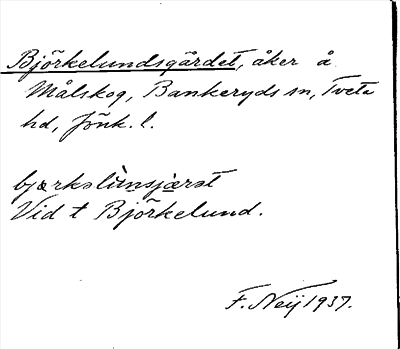 Björkelundsgärdet, åker å
Målskog, Bankeryds sn, Tveta
hd, Jönk. l.
bjærkslùnsjæ̀rst
Vid t Björkelund.
F. Neij 1937.